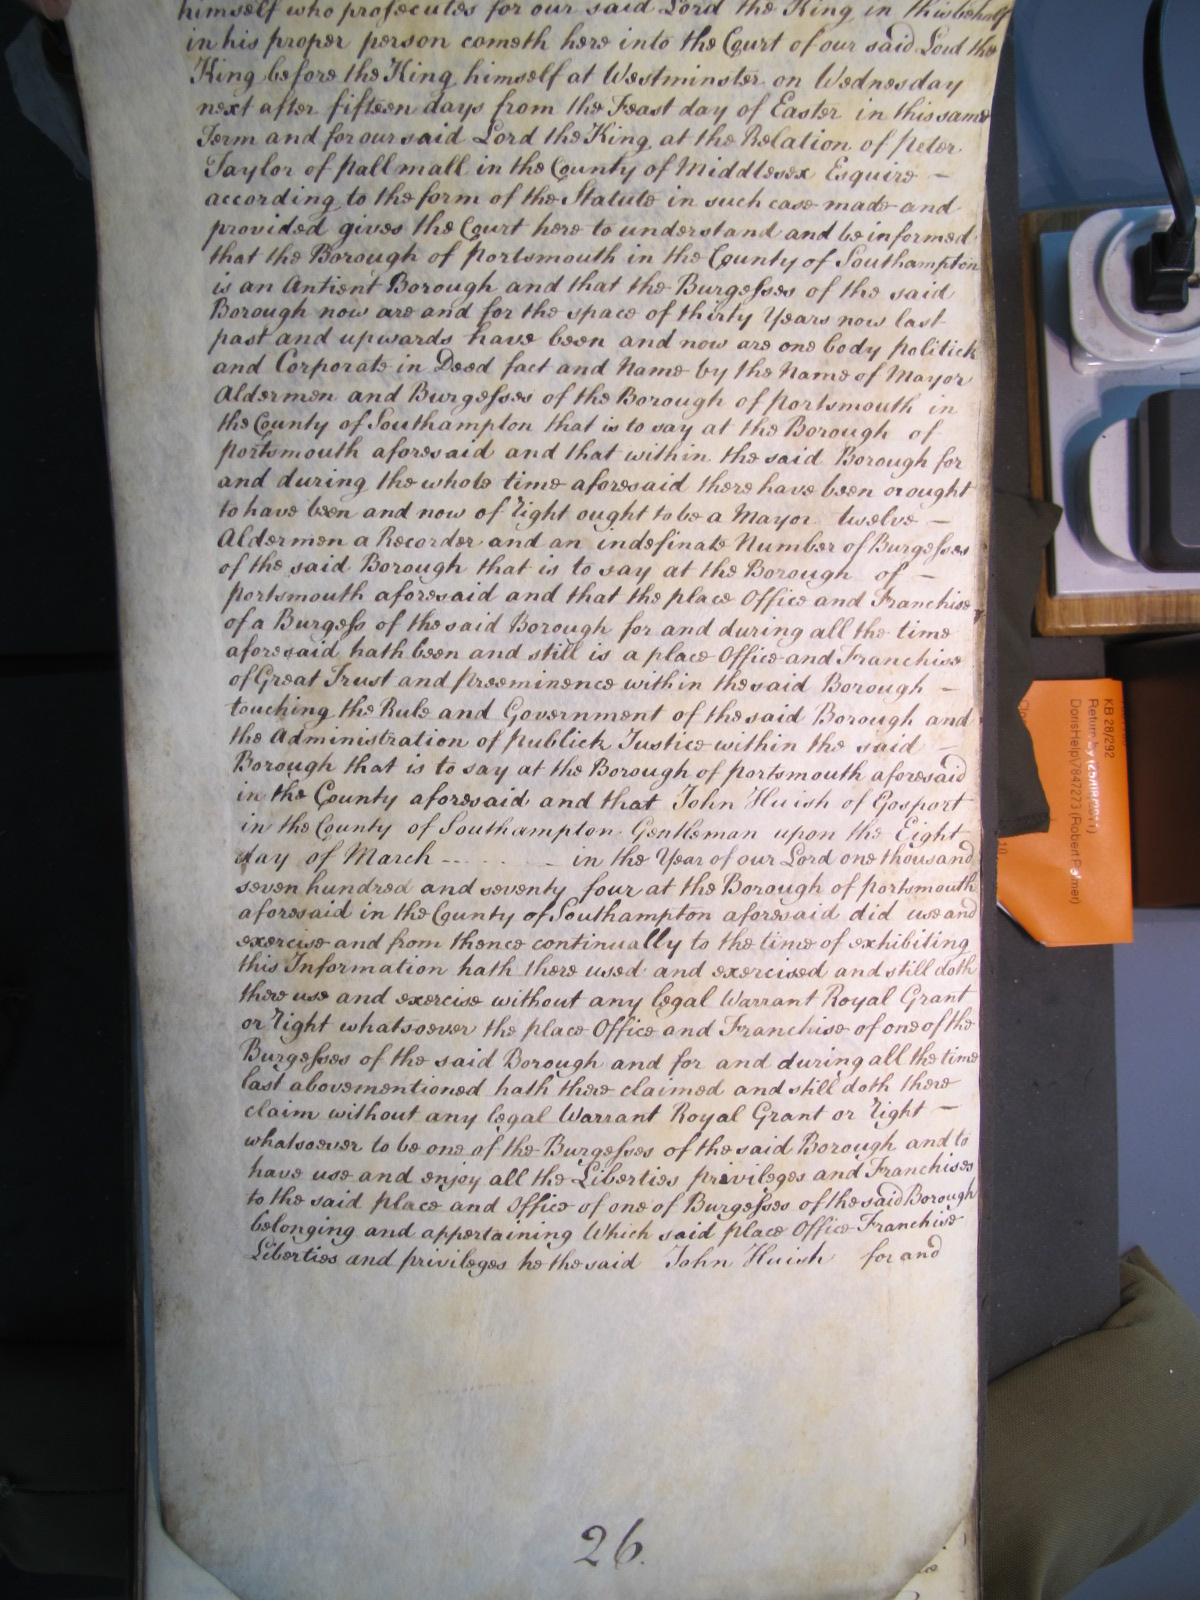 himself who prosecutes for our said Lord the King in this behalf
in his proper person cometh here into the Court of our said Lord the
King before the King himself at Westminster on Wednesday
next after fifteen days from the Feast day of Easter in this same
Term and for our said Lord the King at the Relation of Peter
Taylor of Pallmall in the County of Middlesex Esquire –
according to the form of the Statute in such case made and
provided gives the Court here to understand and be informed
that the Borough of Portsmouth in the County of Southampton
is an Antient Borough and that the Burgesses of the said
Borough now are and for the space of thirty Years now last
past and upwards have been and now are one body politick
and Corporate in Deed fact and Name by the Name of Mayor
Aldermen and Burgesses of the Borough of Portsmouth in
the County of Southampton that is to say at the Borough of
Portsmouth aforesaid and that within the said Borough for
and during the whole time aforesaid there have been or ought
to have been and now of right ought to be a Mayor twelve –
Aldermen a Recorder and an indefinate Number of Burgesses
of the said Borough that is to say at the Borough of –
Portsmouth aforesaid and that the place Office and Franchise
of a Burgess of the said Borough for and during all the time
aforesaid hath been and still is a place Office and Franchise
of Great Trust and Preeminence within the said Borough –
touching the Rule and Government of the said Borough and
the Administration of Publick Justice within the said –
Borough that is to say at the Borough of Portsmouth aforesaid
in the County aforesaid and that John Huish of Gosport
in the County of Southampton Gentleman upon the Eight
day of March - - - - - - - in the Year of our Lord one thousand
seven hundred and seventy four at the Borough of Portsmouth
aforesaid in the County of Southampton aforesaid did use and
exercise and from thence continually to the time of exhibiting
this Information hath there used and exercised and still doth
there use and exercise without any legal Warrant Royal Grant
or right whatsoever the place Office and Franchise of one of the
Burgesses of the said Borough and for and during all the time
last abovementioned hath there claimed and still doth there
claim without any legal Warrant Royal Grant or right –
whatsoever to be one of the Burgesses of the said Borough and to
have use and enjoy all the Liberties privileges and Franchises
to the said place and Office of one of Burgesses of the said Borough
belonging and appertaining Which said place Office Franchise
Liberties and privileges he the said John Huish for and
26.
KB 28/292
Return by (25/11/2011)
DorisHelp\7847273 (Robert Palmer)